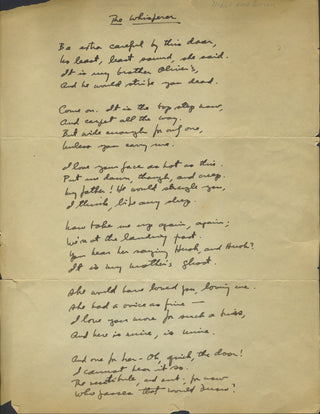 The Whisperer
Be extra careful by this door,
No least, least sound, she said.
It is my brother Oliver's,
And he would strike you dead.
Come on. It is the top step now,
And carpet all the way.
But wide enough for only one,
Unless you carry me.
I love your face as hot as this.
Put me down, though, and creep.
My father! He would strangle you,
I think, like any sheep.
Now take me up again, again;
We're at the landing post.
You hear her saying Hush, and Hush?
It is my mother's ghost.
She would have loved you, loving me.
She had a voice as fine —
I love you more for such a kiss,
And here is mine, is mine.
And one for her — Oh, quick, the door!
I cannot bear it so.
The vestibule, and out; for now
Who passes that would know?